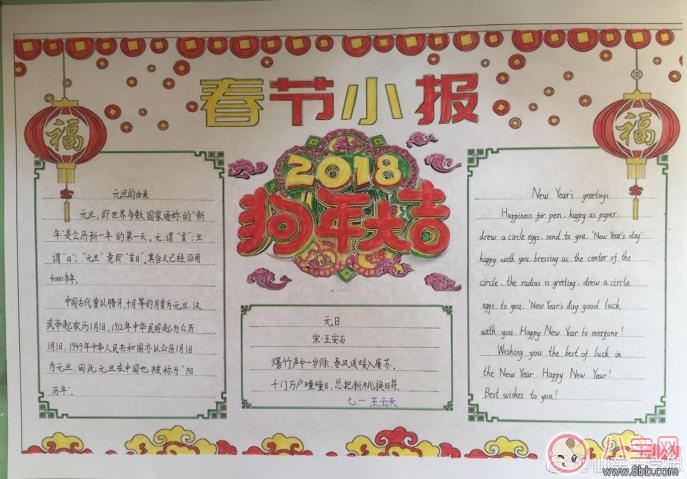 春节小报
福
福
2018
狗年大吉
元旦的由来
元旦，即世界多数国家通称的“新
年”，是公历新一年的第一天。元，谓“首”；旦
谓“日”；“元旦”意即“首日”。其含义已经沿用
4000多年。
中国古代曾以腊月、十月等的月首为元旦，汉
武帝起农历1月1日，1912年中华民国起为公历
1月1日，1949年中华人民共和国亦以公历1月1日
为元旦，因此元旦在中国也被称为“阳
历年”。
元日
宋·王安石
爆竹声中一岁除，春风送暖入屠苏。
千门万户曈曈日，总把新桃换旧符。
七.一 王云天
New Year's greetings
Happiness for pen, happy as paper,
drew a circle eggs, send to you. "New Year's day"
happy with you, bressing as the center of the
circle, the radius is greeting, drew a circle
eggs, to you. "New Year's day good luck
with you. Happy New Year to everyone!
Wishing you the best of luck in
the New Year. Happy New Year!
Best wishes to you!
八宝网
www.8bb.com